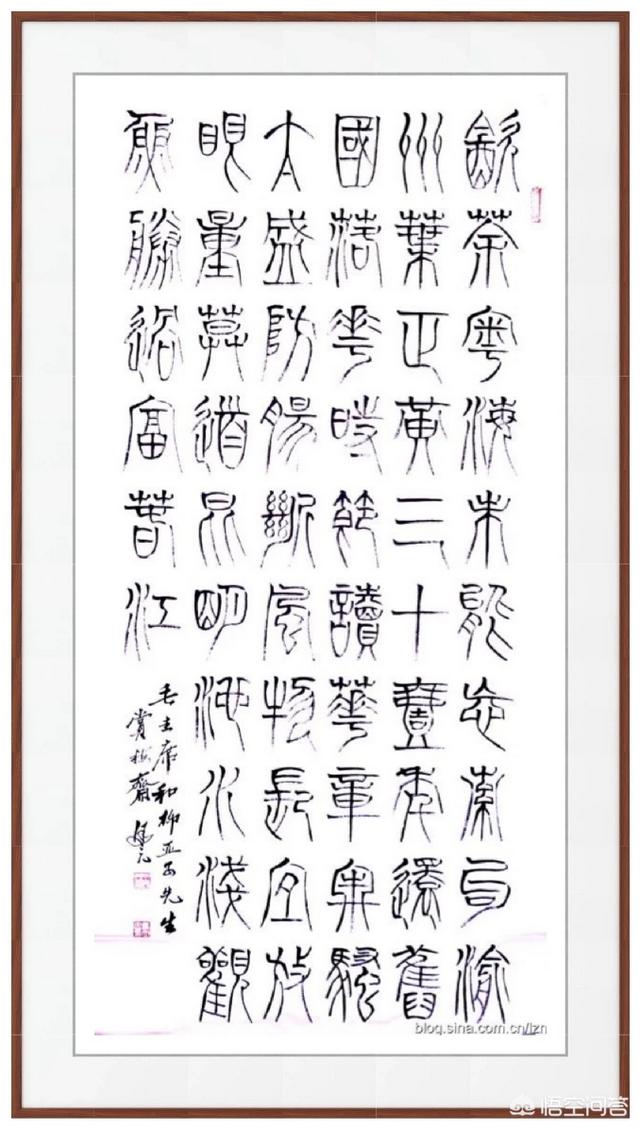 飲茶粵海未能忘索句渝
州葉正黃三十壹年還舊
國落花時節讀華章牢騷
太盛防腸斷風物長宜放
眼量莫道昆明池水淺觀
魚勝過富春江
毛主席和柳亞子先生
賞 齋
blog.sina.com.cn/lzn
悟空问答